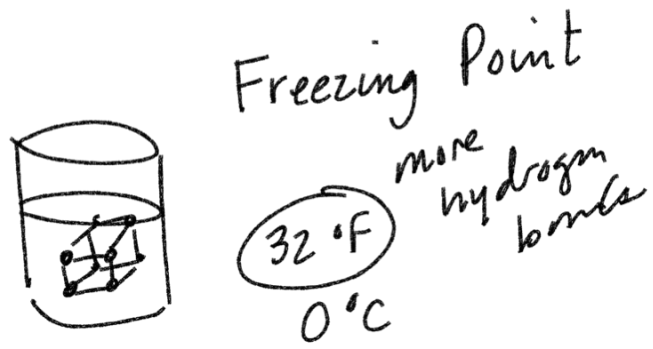 Freezing Point
more
hydrogen
bonds
32 °F
0 °C